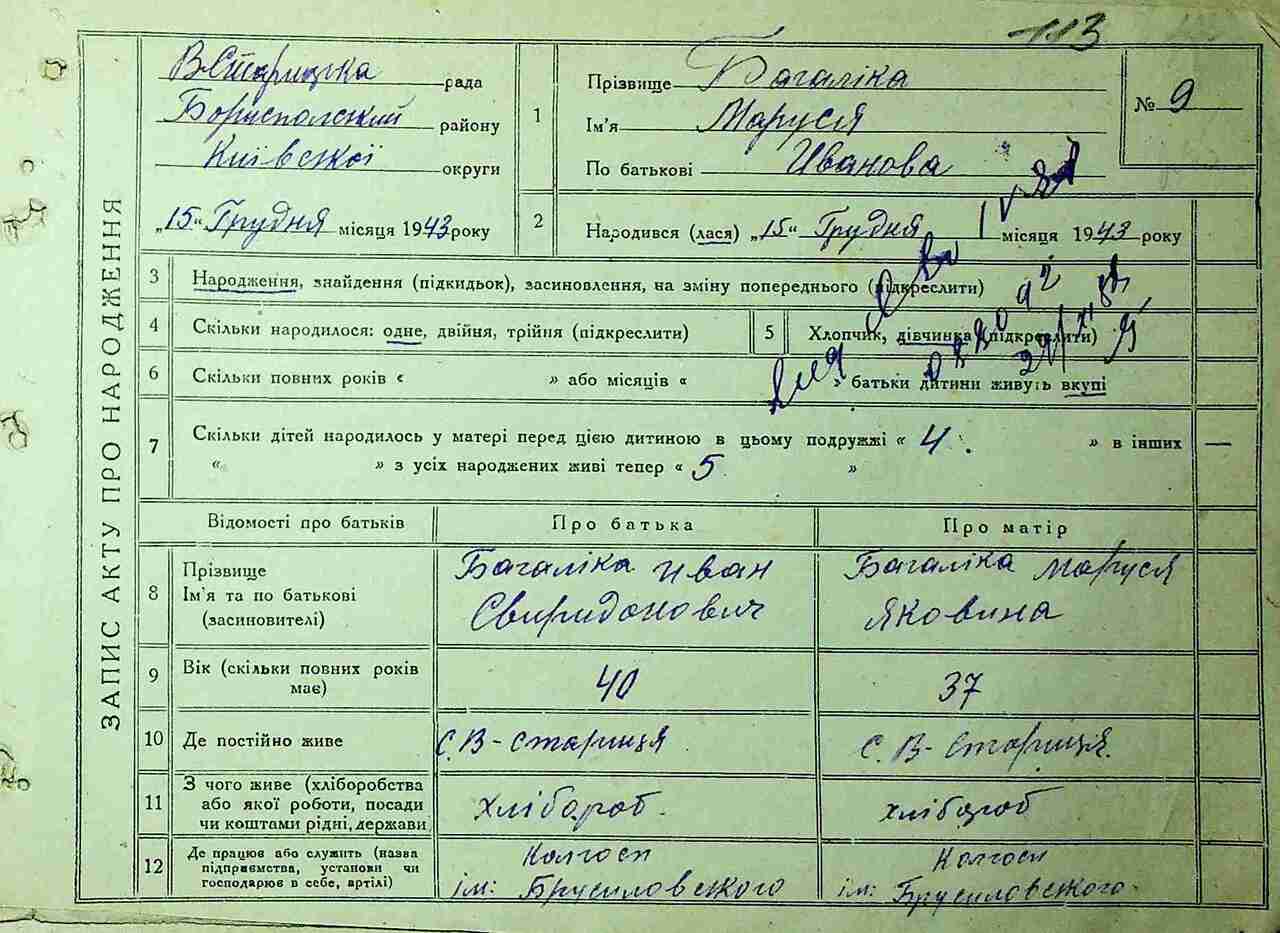 113
В Старицька рада
Бориспольский району
Київської округи
„15“ Грудня місяця 1943 року
1 Прізвище Багаліка
Ім'я Маруся
По батькові Иванова
№ 9
2 Народився (лася) „15“ Грудня місяця 1943 року
ЗАПИС АКТУ ПРО НАРОДЖЕННЯ
3 Народження, знайдення (підкидьок), засиновлення, на зміну попереднього (підкреслити)
4 Скільки народилося: одне, двійня, трійня (підкреслити)
5 Хлопчик, дівчинка (підкреслити)
6 Скільки повних років « » або місяців « » батьки дитини живуть вкупі
7 Скільки дітей народилось у матері перед цією дитиною в цьому подружжі « 4 » в інших —
« » з усіх народжених живі тепер « 5 »
Відомості про батьків Про батька Про матір
8 Прізвище
Ім'я та по батькові
(засиновителі)
Багаліка Иван
Свиридонович
Багаліка Маруся
Яковина
9 Вік (скільки повних років
має)
40 37
10 Де постійно живе С. В-Стариця С. В-Стариця.
11 З чого живе (хліборобства
або якої роботи, посади
чи коштами рідні, держави
хлібороб. хлібороб
12 Де працює або служить (назва
підприємства, установи чи
господарює в себе, артілі)
Колгосп
ім: Брусиловського
Колгосп
ім: Брусиловського.